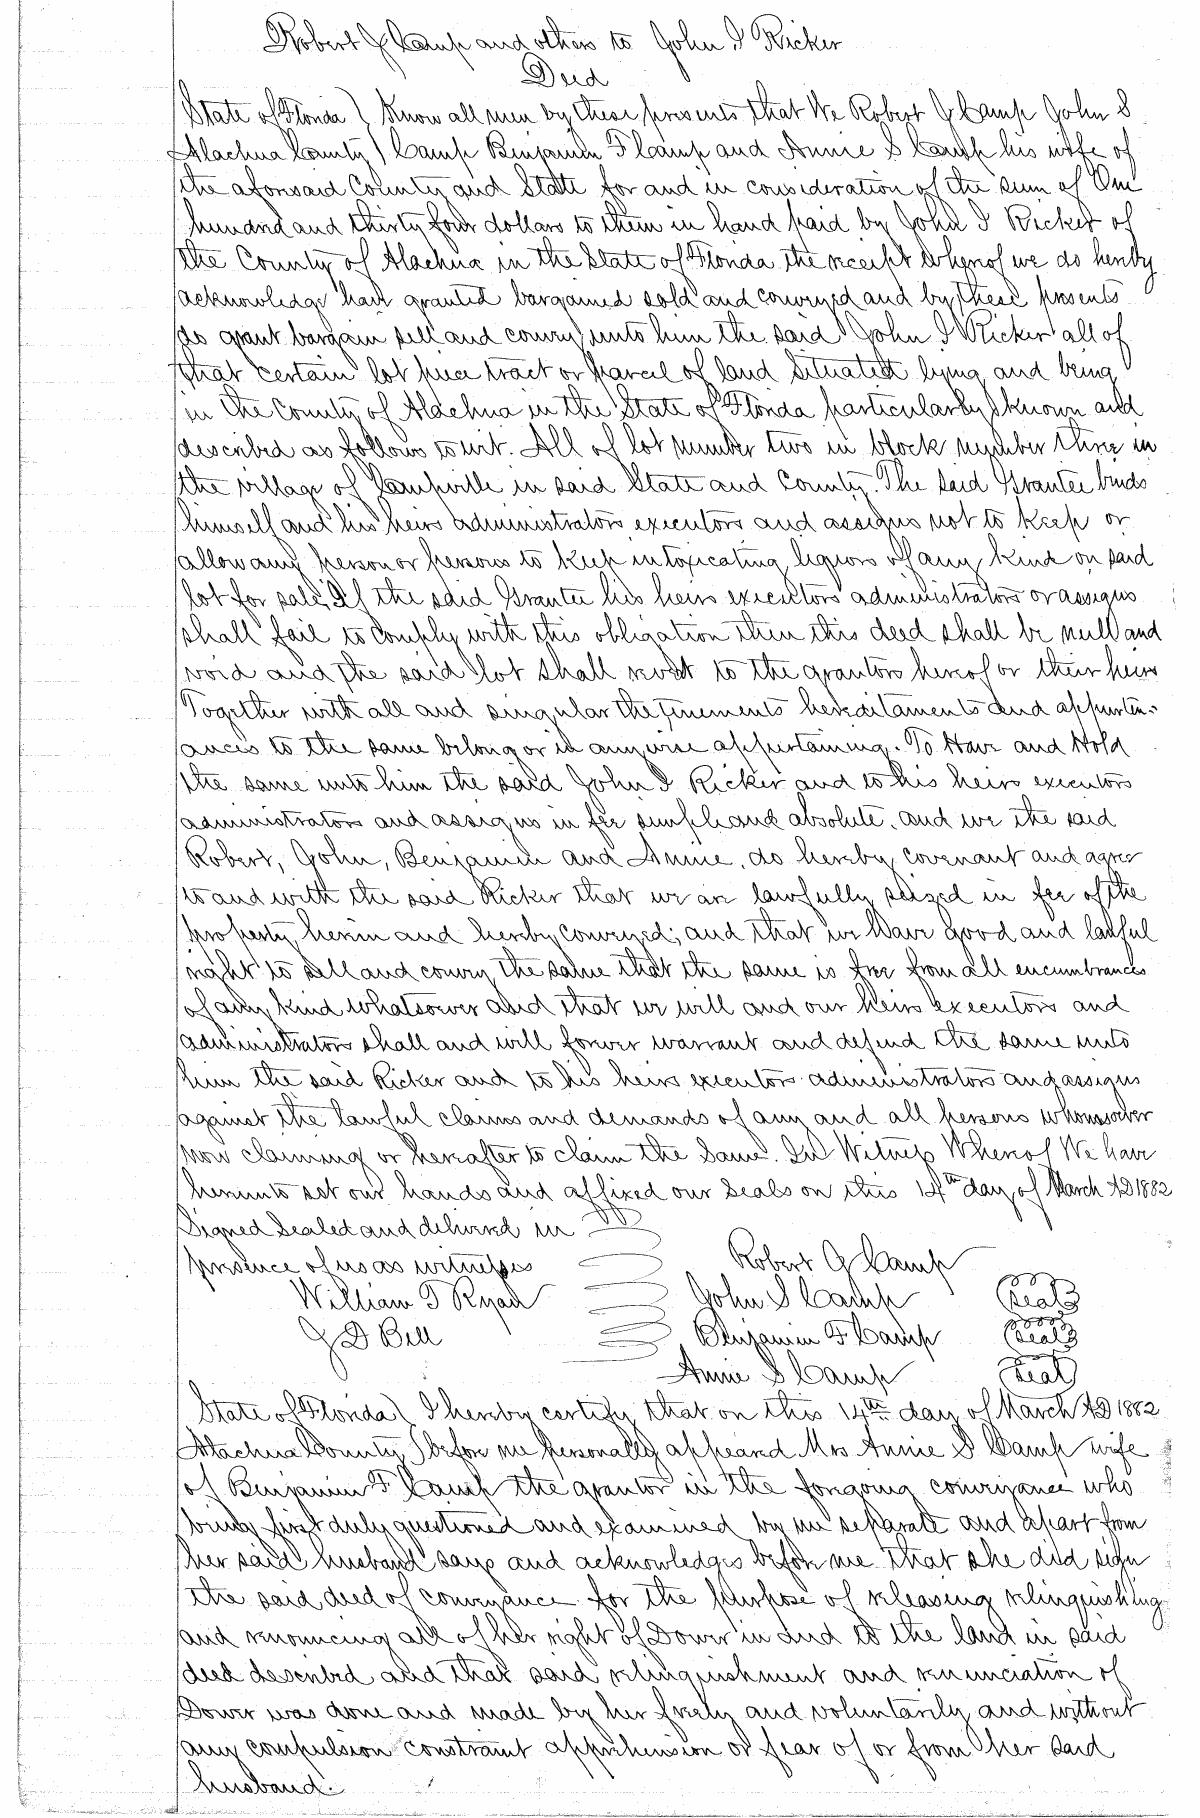 Robert G Camp and others to John I Ricker
Deed
State of Florida ) Know all men by these presents that We Robert G Camp John S
Alachua County ) Camp Benjamin F Camp and Annie S Camp his wife of
the aforesaid County and State for and in consideration of the sum of One
hundred and thirty four dollars to them in hand paid by John I Ricker of
the County of Alachua in the State of Florida the receipt whereof we do hereby
acknowledge have granted bargained sold and conveyed and by these presents
do grant bargain sell and convey unto him the said John I Ricker all of
that certain lot piece tract or parcel of land situated lying and being
in the County of Alachua in the State of Florida particularly known and
described as follows to wit. All of lot number two in block number three in
the village of Campville in said State and County. The said Grantee binds
himself and his heirs administrators executors and assigns not to keep or
allow any person or persons to keep intoxicating liquors of any kind on said
lot for sale. If the said Grantee his heirs executors administrators or assigns
shall fail to comply with this obligation then this deed shall be null and
void and the said lot shall revert to the grantors hereof or their heirs
Together with all and singular the tinements hereditaments and appurten-
ances to the same belong or in anywise appertaining. To Have and Hold
the same unto him the said John I Ricker and to his heirs executors
administrators and assigns in fee simple and absolute. and we the said
Robert, John, Benjamin and Annie, do hereby covenant and agree
to and with the said Ricker that we are lawfully seized in fee of the
property herein and hereby conveyed; and that we have good and lawful
right to sell and convey the same that the same is free from all encumbrances
of any kind whatsoever and that we will and our heirs executors and
administrators shall and will forever warrant and defend the same unto
him the said Ricker and to his heirs executors administrators and assigns
against the lawful claims and demands of any and all persons whomsoever
now claiming or hereafter to claim the same. In Witness Whereof We have
hereunto set our hands and affixed our seals on this 14th day of March AD 1882
Signed Sealed and delivered in
presence of us as witnesses Robert G Camp
William T Ryan John S Camp Seal
J D Bell Benjamin F Camp Seal
Annie S Camp Seal
State of Florida ) I hereby certify that on this 14th day of March AD 1882
Alachua County ) before me personally appeared Mrs Annie S Camp wife
of Benjamin F Camp the grantor in the foregoing conveyance who
being first duly questioned and examined by me separate and apart from
her said husband says and acknowledges before me that she did sign
the said deed of conveyance for the purpose of releasing relinquishing
and renouncing all of her right of Dower in and to the land in said
deed described and that said relinquishment and renunciation of
Dower was done and made by her freely and voluntarily and without
any compulsion constraint apprehension or fear of or from her said
husband.